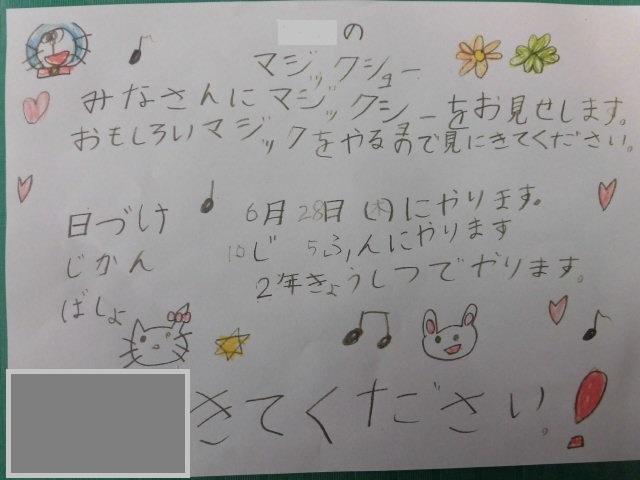 の
マジックショー
みなさんにマジックショーをお見せします。
おもしろいマジックをやるので見にきてください。
日づけ 6月28日(木)にやります。
じかん 10じ 5ふんにやります
ばしょ 2年きょうしつでやります。
きてください。!